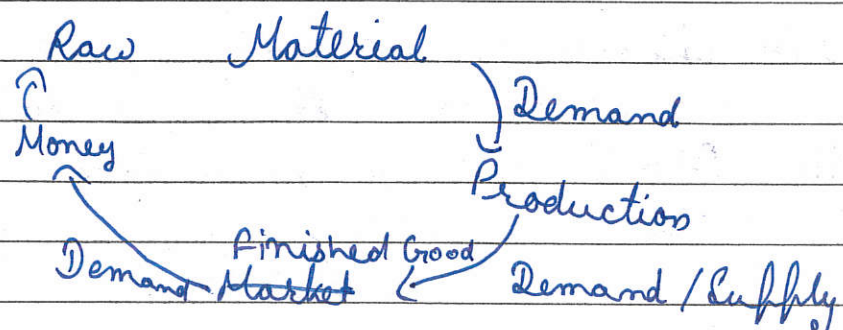 Raw Material
Demand
Money
Production
Finished Good
Demand Market Demand / Supply